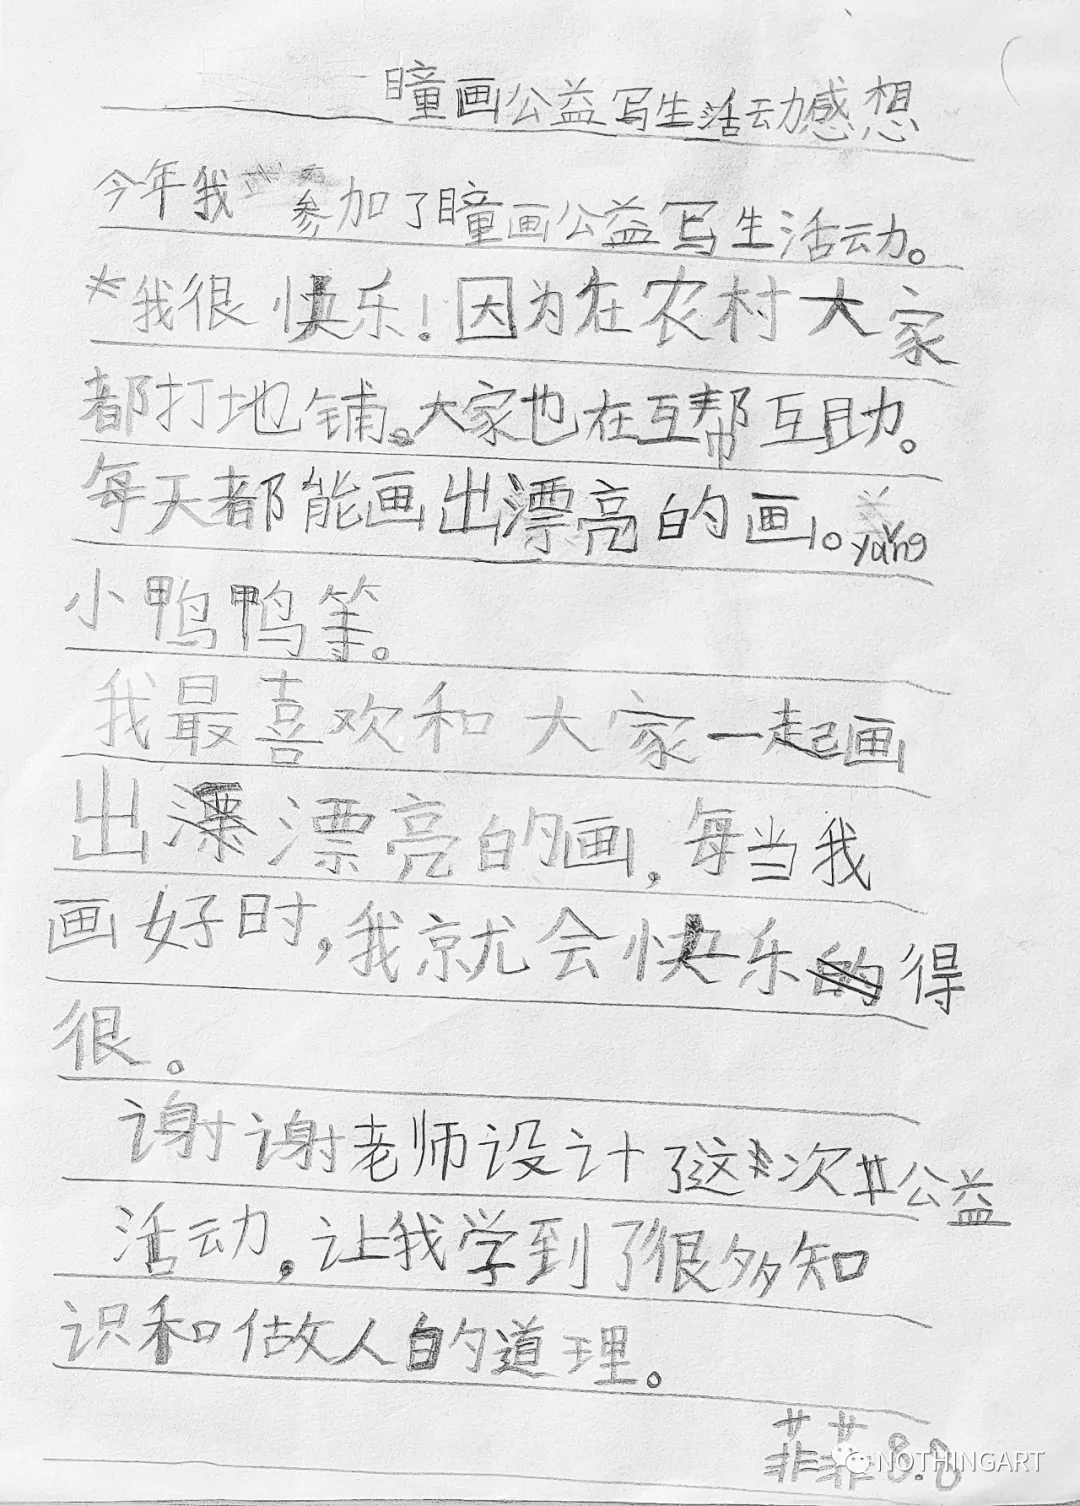 瞳画公益写生活动感想
今年我参加了瞳画公益写生活动。
我很快乐！因为在农村大家
都打地铺。大家也在互帮互助。
每天都能画出漂亮的画。yǎng
小鸭鸭等。
我最喜欢和大家一起画
出漂亮的画，每当我
画好时，我就会快乐得
很。
谢谢老师设计了这次公益
活动，让我学到了很多知
识和做人的道理。
菲菲 8.8
NOTHINGART